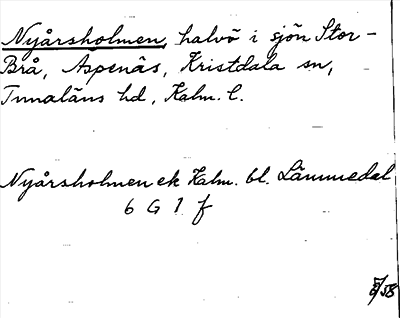 Nyårsholmen, halvö i sjön Stor-
Brå, Aspenäs, Kristdala sn,
Tunaläns hd, Kalm. l.
Nyårsholmen ek Kalm. bl. Lämmedal
6 G 1 f
58